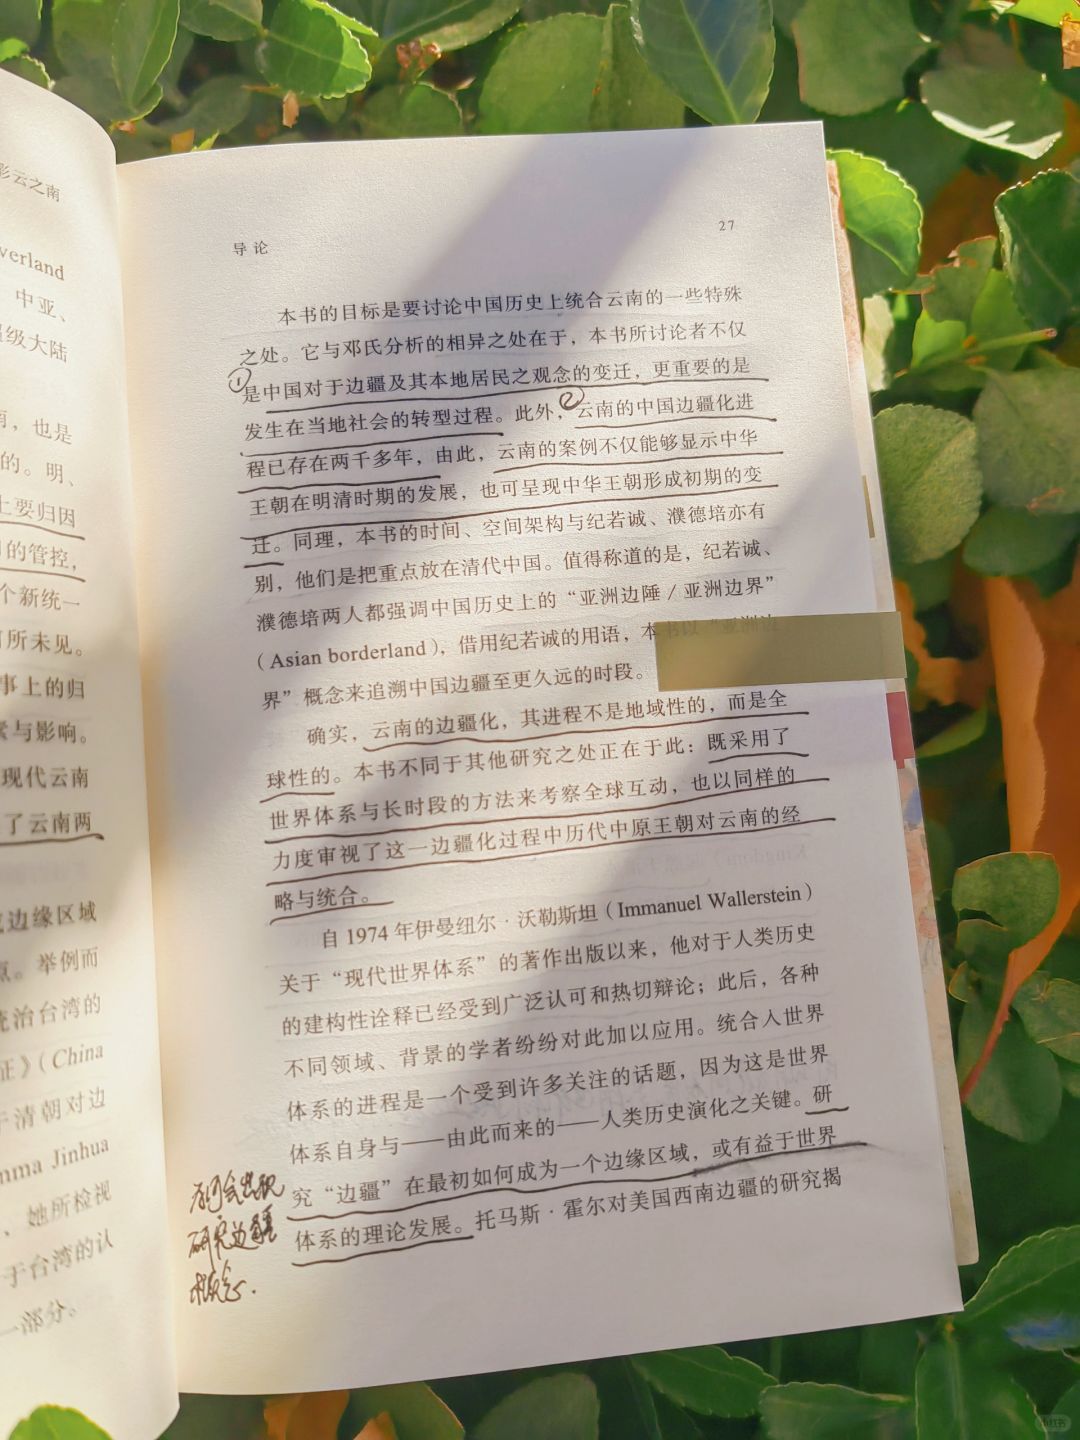 彩云之南
verland
中亚、
超级大陆
，也是
的。明、
上要归因
的管控，
个新统一
所未见。
事上的归
素与影响。
现代云南
了云南两
边缘区域
点。举例而
统治台湾的
证》（China
于清朝对边
mma Jinhua
、她所检视
于台湾的认
一部分。
导论
27
本书的目标是要讨论中国历史上统合云南的一些特殊
之处。它与邓氏分析的相异之处在于，本书所讨论者不仅
①
是中国对于边疆及其本地居民之观念的变迁，更重要的是
发生在当地社会的转型过程。此外，②云南的中国边疆化进
程已存在两千多年，由此，云南的案例不仅能够显示中华
王朝在明清时期的发展，也可呈现中华王朝形成初期的变
迁。同理，本书的时间、空间架构与纪若诚、濮德培亦有
别，他们是把重点放在清代中国。值得称道的是，纪若诚、
濮德培两人都强调中国历史上的“亚洲边陲 / 亚洲边界”
（Asian borderland），借用纪若诚的用语，本书以“亚洲边
界”概念来追溯中国边疆至更久远的时段。
确实，云南的边疆化，其进程不是地域性的，而是全
球性的。本书不同于其他研究之处正在于此：既采用了
世界体系与长时段的方法来考察全球互动，也以同样的
力度审视了这一边疆化过程中历代中原王朝对云南的经
略与统合。
自 1974 年伊曼纽尔·沃勒斯坦（Immanuel Wallerstein）
关于“现代世界体系”的著作出版以来，他对于人类历史
的建构性诠释已经受到广泛认可和热切辩论；此后，各种
不同领域、背景的学者纷纷对此加以应用。统合入世界
体系的进程是一个受到许多关注的话题，因为这是世界
体系自身与——由此而来的——人类历史演化之关键。研
究“边疆”在最初如何成为一个边缘区域，或有益于世界
体系的理论发展。托马斯·霍尔对美国西南边疆的研究揭
为何会出现
研究边疆
概念.
小红书